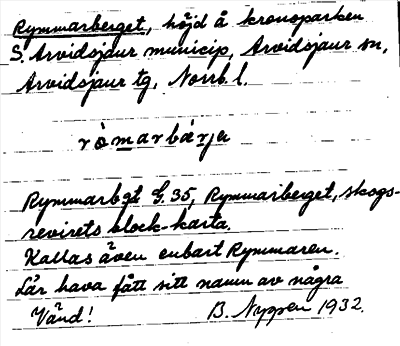 Rymmarberget, höjd å kronoparken
S. Arvidsjaur municip, Arvidsjaur sn,
Arvidsjaur tg, Norrb. l.
ròmarbárja
Rymmarbgt G. 35, Rymmarberget, skogs-
revirets block-karta.
Kallas även enbart Rymmaren.
Lär hava fått sitt namn av några
Vänd! B. Nyppen 1932.